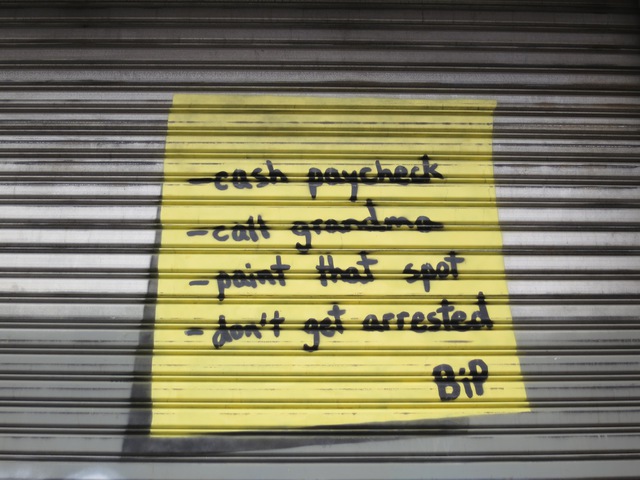 -cash paycheck
-call grandma
-paint that spot
-don't get arrested
BiP